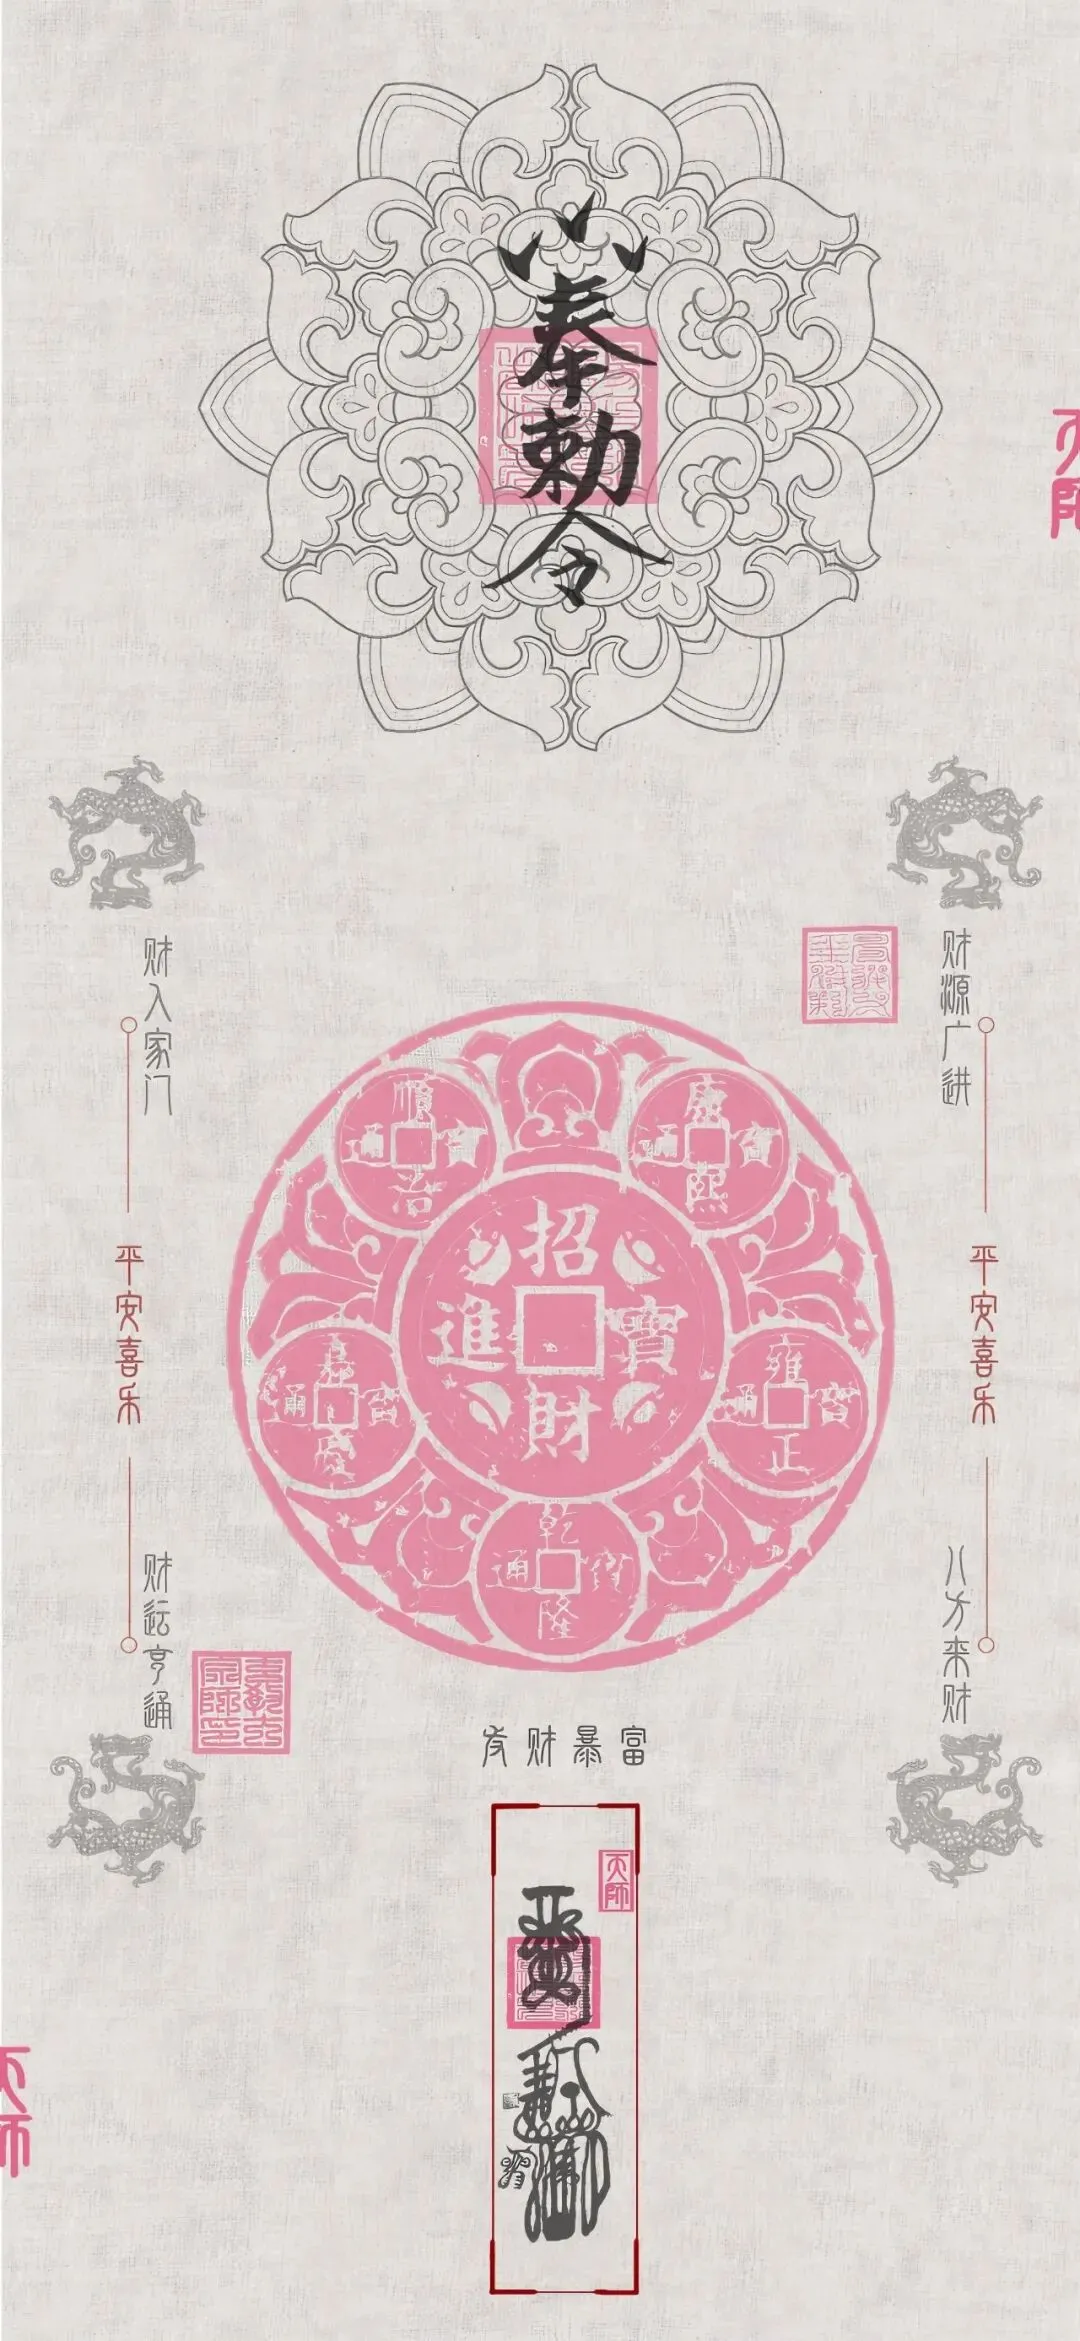 奉
勅
令
天師
财入家门
财源广进
顺治通寶
康熙通寶
招財進寶
平安喜乐
平安喜乐
嘉慶通寶
雍正通寶
乾隆通寶
财运亨通
八方来财
发财暴富
天師
天師